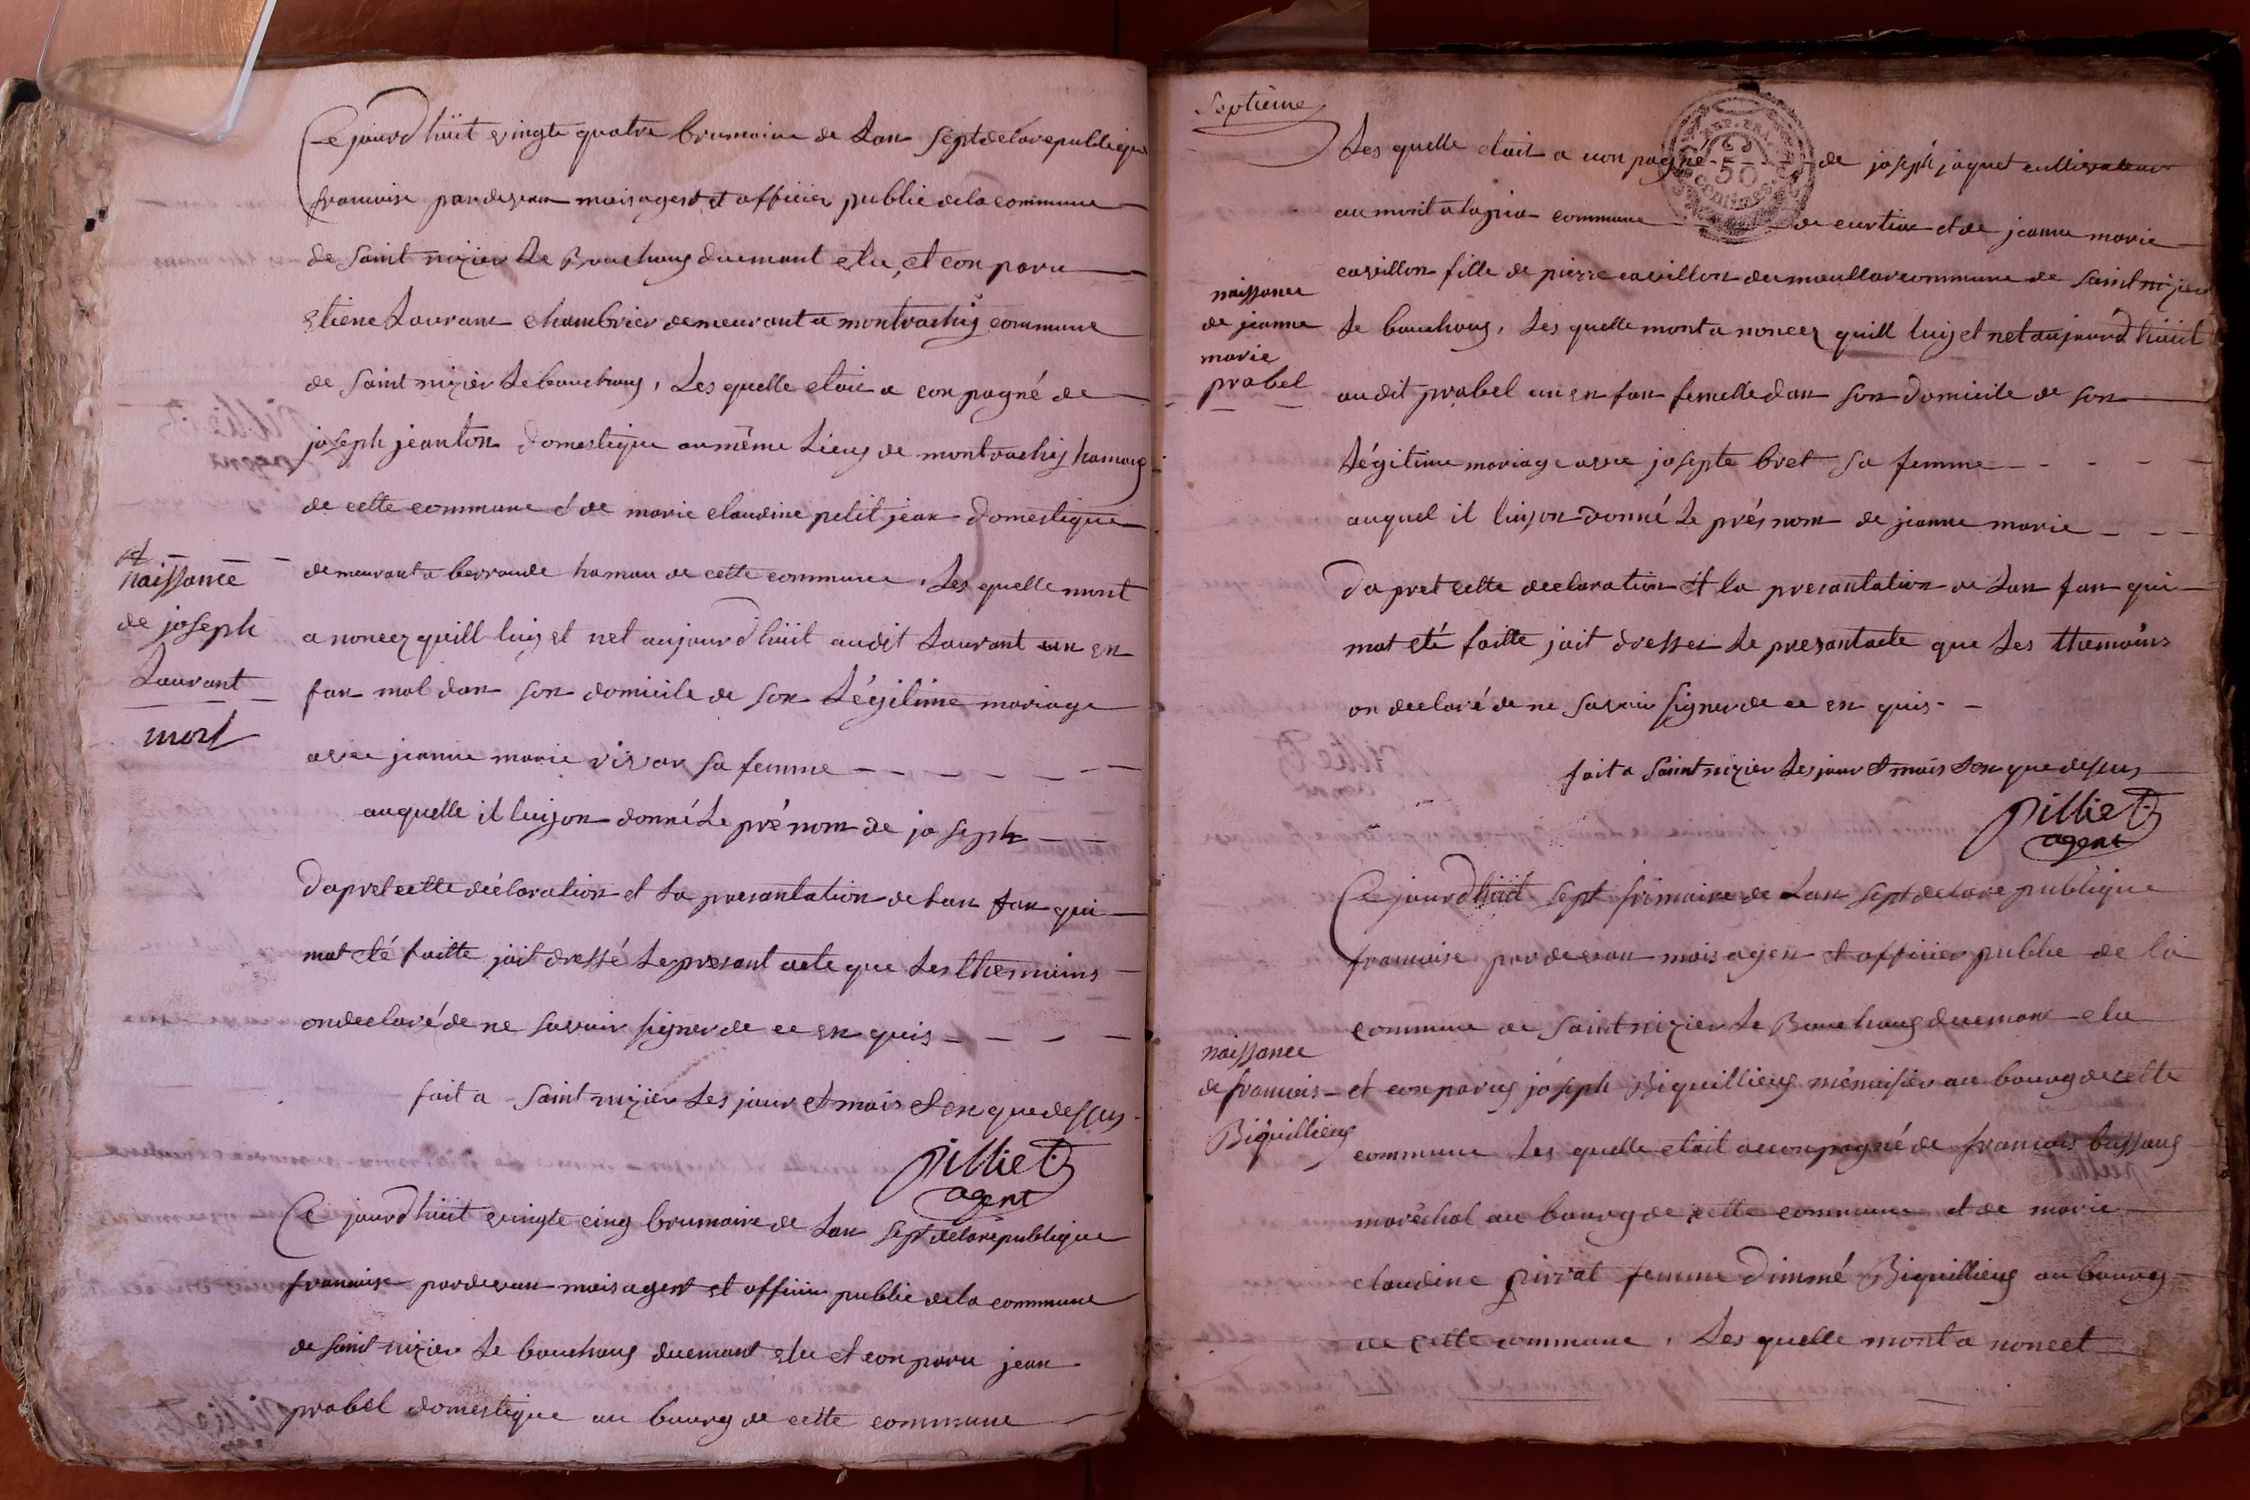 Ce jourd'hüit vingte quatre brumaire de Lan Sept de la republique
francoise par devan mois agent et officier public de la commune
de Saint nizier Le Bouchoug duemant elu, et conparu
etiene Lauranc chambrier demeurant a montrachy commune
de Saint nizier Le bouchoug, Les quelle etoit a conpagné de
joseph jeanton Domestique au même Lieug de montrachy hamaug
de cette commune et de marie claudine petit jean Domestique
demeurant a berroude hamau de cette commune, Les quelle mont
naissance
de joseph
Laurant
mort
a noncez quill luy et net aujourd'hüit audit Laurant un en
fan mal dan son domicile de son Légitime mariage
avec jeanne marie vivar sa femme
auquelle il luy on donné Le prénom de joseph
Dapret cette déclaration et La presantation de Lan fan qui
mat été faitte jait dressé Le presant acte que Les themoins
on declaré de ne savoir signer de ce en quis
fait a Saint nizier Les jour et mois et en que dessus
pilliet
agent
Ce jourd'hüit vingte cinq brumaire de Lan Sept de la republique
francoise par devan mois agent et officier public de la commune
de Saint nizier Le bouchoug duemant elu et conparu jean
prabel domestique au bourg de cette commune
Septième
REP. FRA
50
centimes
Les quelle etoit a conpagné de joseph jaquet cultivateur
au mont commune de curtiat et de jeanne marie
cavillon fille de pierre cavillon du moullar commune de Saint nizier
naissance
de jeanne
marie
prabel
Le bouchoug, Les quelle mont a noncez quill luy et net aujourd'hüit
audit prabel un en fan femelle dan son domicile de son
Légitime mariage avec josepte bret sa femme
auquel il luy on donné Le présnom de jeanne marie
Dapret cette declaration et la presantation de Lan fan qui
mat eté faitte jait dresser Le presant acte que Les themoins
on declaré de ne savoir signer de ce en quis
fait a Saint nizier Les jour et mois et en que dessus
pilliet
agent
Ce jourd'hüit Sept frimaire de Lan Sept de la re publique
francoise par devan mois agen et officier public de la
commune de Saint nizier Le Bouchoug duemant elu
naissance
de francois
Biquillieug
et conparug joseph Biquillieug menuisier au bourg de cette
commune Les quelle etoit acconpagné de francois bussoug
maréchal au bourg de cette commune et de marie
claudine pirrat femme Dimmé Biquillieug au bourg
de cette commune, Les quelle mont a noncet